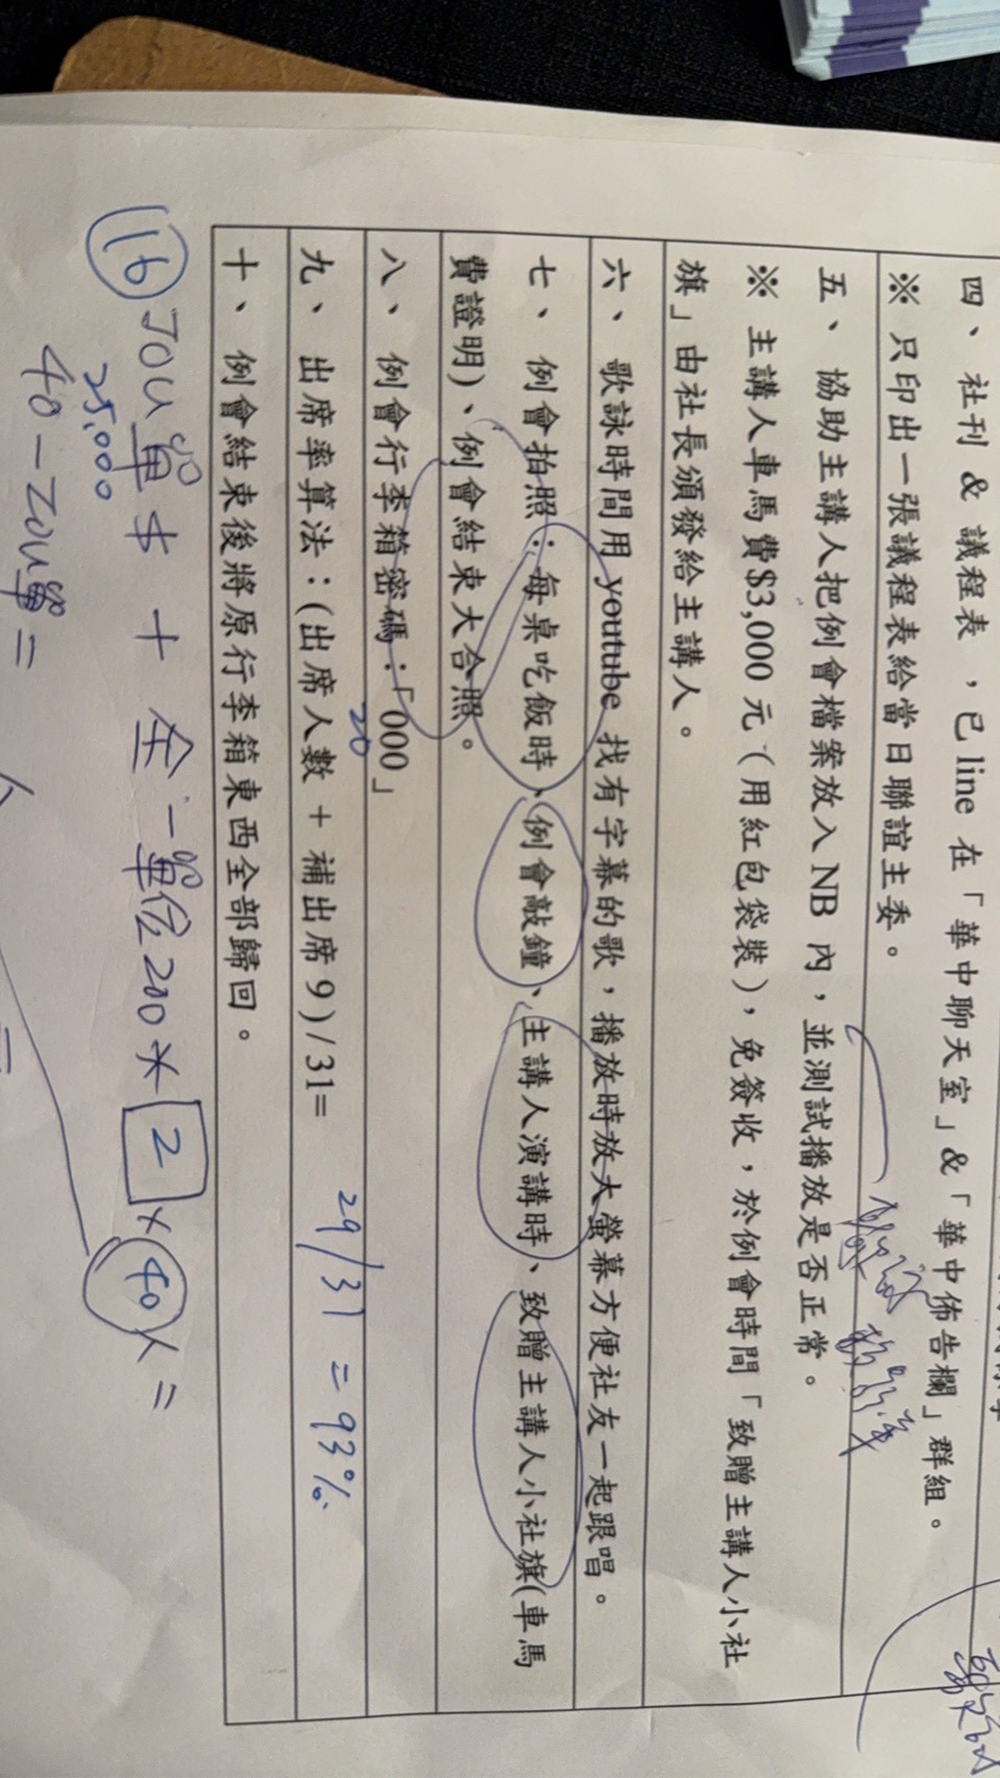 四、 社刊 & 議程表 ，已 line 在「華中聊天室」&「華中佈告欄」群組。
※ 只印出一張議程表給當日聯誼主委。
五、 協助主講人把例會檔案放入 NB 內，並測試播放是否正常。
※ 主講人車馬費$3,000 元（用紅包袋裝），免簽收，於例會時間「致贈主講人小社
旗」由社長頒發給主講人。
六、 歌詠時間用 youtube 找有字幕的歌，播放時放大螢幕方便社友一起跟唱。
七、 例會拍照：每桌吃飯時、例會敲鐘、主講人演講時、致贈主講人小社旗(車馬
費證明)、例會結束大合照。
八、 例會行李箱密碼：「000」
20
九、 出席率算法：(出席人數 + 補出席 9) / 31= 29/31 = 93%
十、 例會結束後將原行李箱東西全部歸回。
16 JOU單 $ + 全一單位200 × 2 × 40人 =
25,000
40 - ZOU單 =